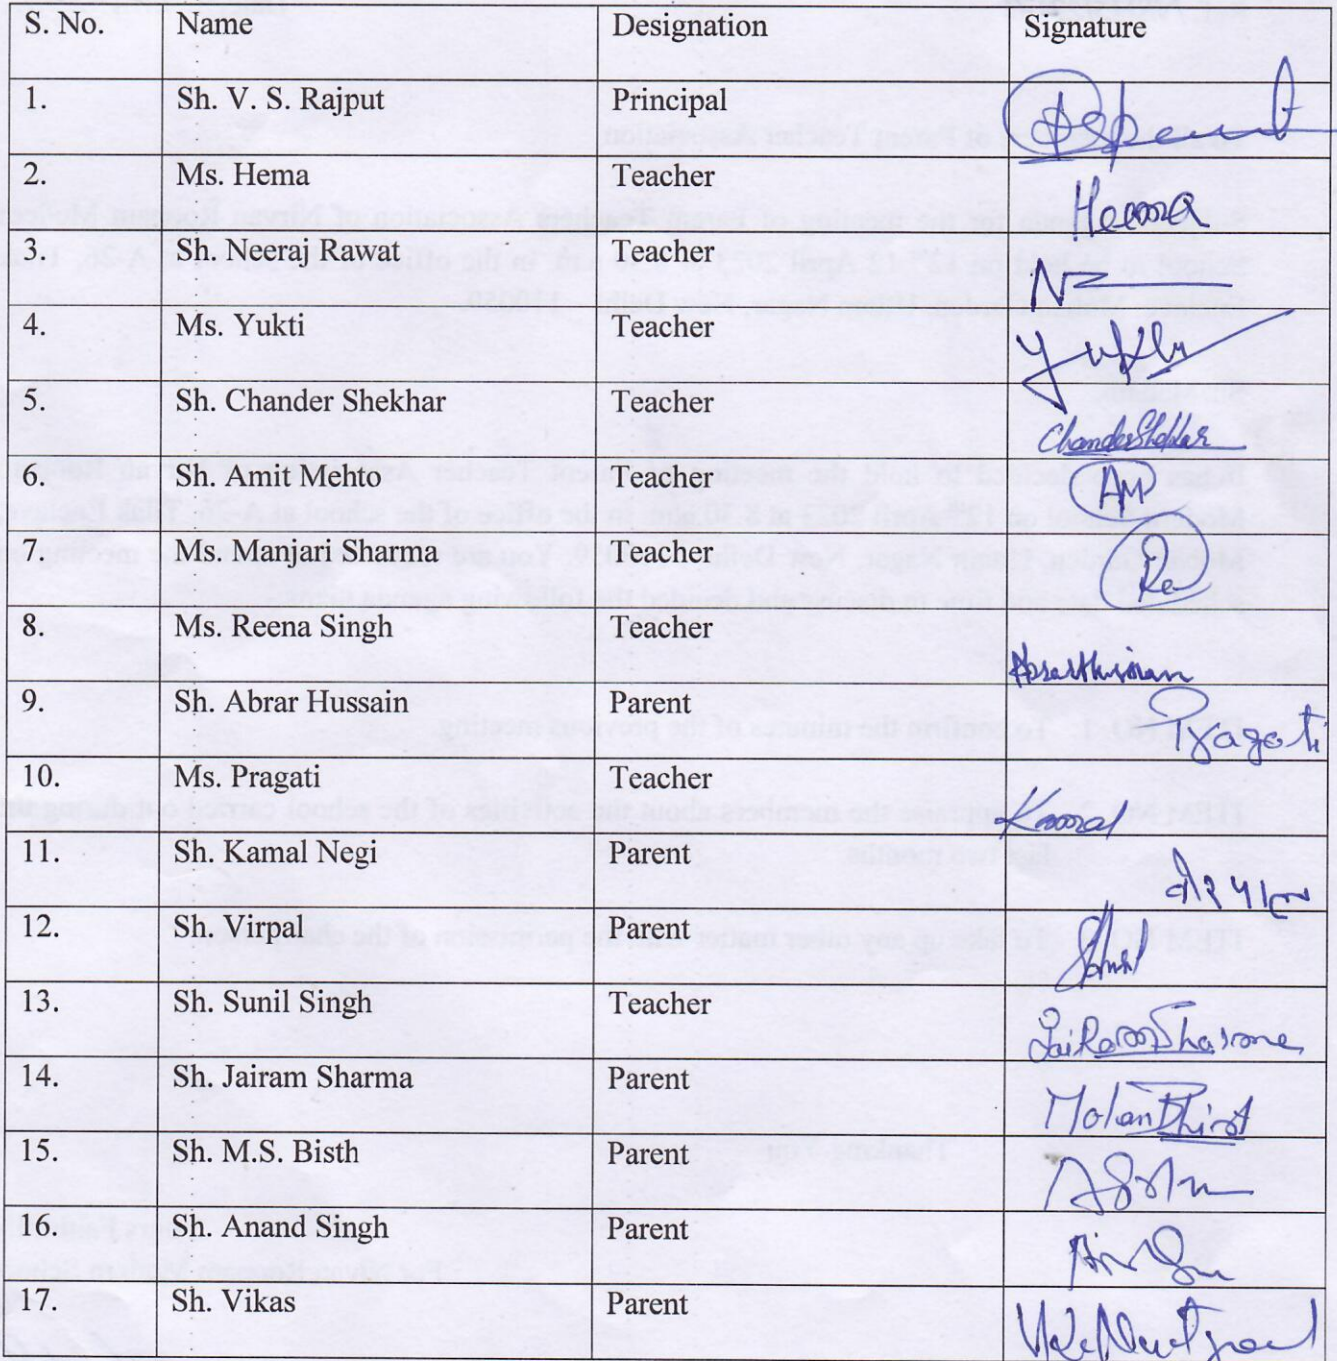 S. No. Name Designation Signature
1. Sh. V. S. Rajput Principal
2. Ms. Hema Teacher Heema
3. Sh. Neeraj Rawat Teacher
4. Ms. Yukti Teacher Yukti
5. Sh. Chander Shekhar Teacher ChanderShekhar
6. Sh. Amit Mehto Teacher AM
7. Ms. Manjari Sharma Teacher
8. Ms. Reena Singh Teacher
9. Sh. Abrar Hussain Parent Pragati
10. Ms. Pragati Teacher Kamal
11. Sh. Kamal Negi Parent वीरपाल
12. Sh. Virpal Parent
13. Sh. Sunil Singh Teacher JaiRam Sharma
14. Sh. Jairam Sharma Parent
15. Sh. M.S. Bisth Parent
16. Sh. Anand Singh Parent
17. Sh. Vikas Parent